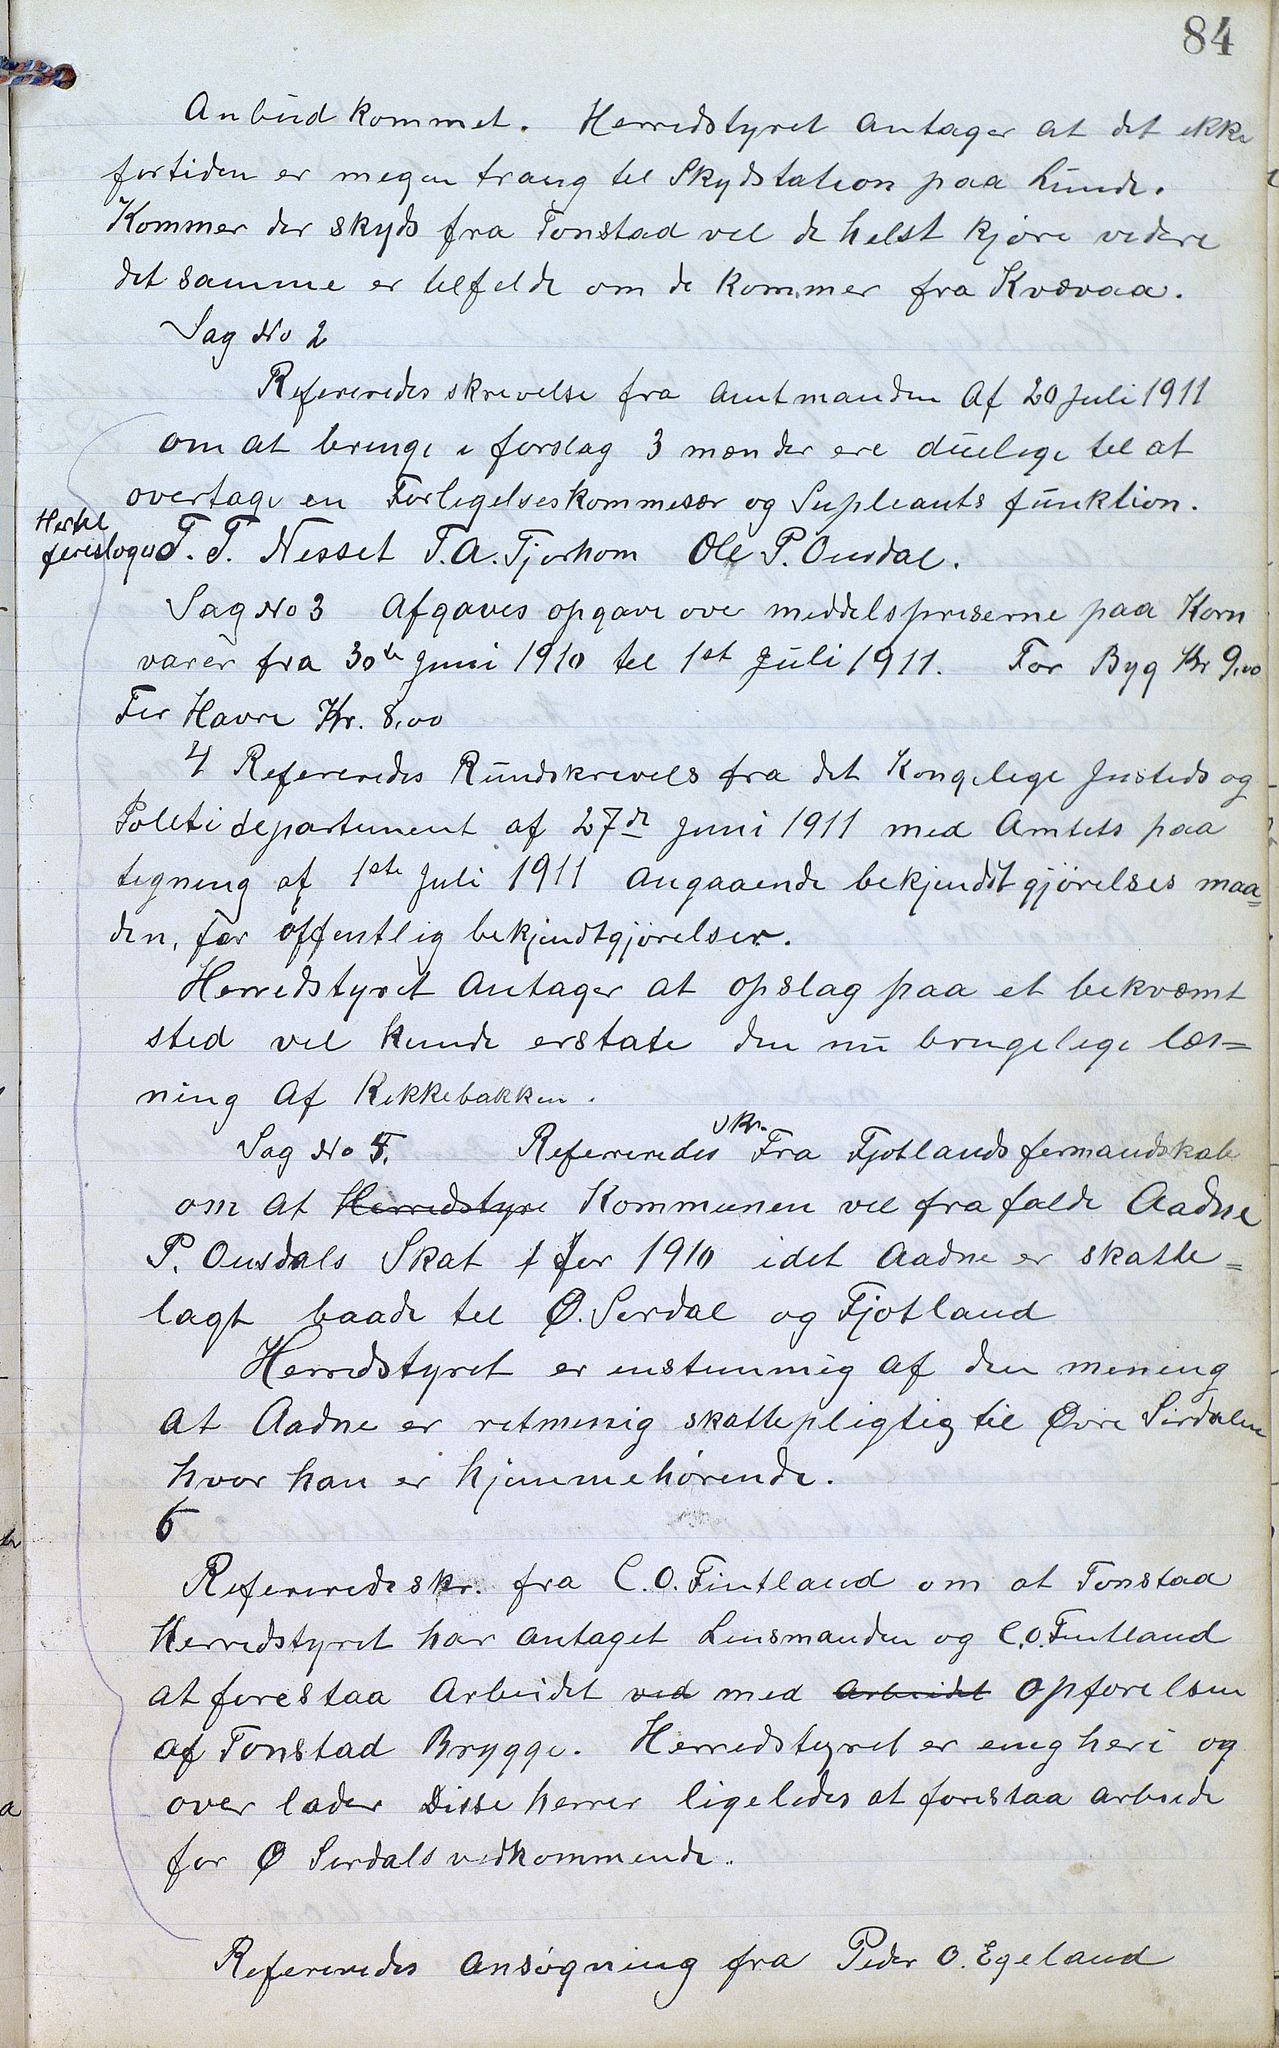 84
Anbud kommet. Herredstyret antager at det ikke
fortiden er megen trang til Skydstation paa Lunde.
Kommer der skyds fra Tonstad vil de helst kjøre videre
det samme er tilfelde om de kommer fra Kvævaa.
Sag No 2
Refereredes skrivelse fra Amtmanden Af 20 Juli 1911
om at bringe i forslag 3 mænder ere duelige til at
overtage en Forligelseskommisær og Supleants funktion.
Her bl
foreslogus T. T. Nesset T. A. Tjorhom Ole P. Ousdal.
Sag No 3 Afgaves opgave over middelspriserne paa Korn
varer fra 30te Juni 1910 til 1st Juli 1911. For Byg Kr 9,00
For Havre Kr. 8,00
4 Refereredes Rundskrivels fra det Kongelige Justeds og
Politidepartement af 27de Juni 1911 med Amtets paa
tegning af 1ste Juli 1911 angaaende bekjendtgjørelses maa=
den, for offentlig bekjendtgjørelser.
Herredstyret Antager at opslag paa et bekvæmt
sted vil kunde erstate den nu brugelige læs=
ning Af Kirkebakken.
Sag No 5. Refereredes skr. Fra Fjotlands formandskab
om at Herredstyre Kommunen vil frafalde Aadne
P. Ousdals Skat f for 1910 idet Aadne er skatte=
lagt baade til Ø. Serdal og Fjotland
Herredstyret er enstemmig af den mening
at Aadne er retmessig skattepligtig til Øvre Sirdalen
hvor han er hjemmehørende.
6
Refereredes skr. fra C. O. Fintland om at Tonstad
Herredstyret har antaget Lensmanden og C. O. Fintland
at forestaa Arbeidet ved med Arbeidet Opførelsen
af Tonstad Brygge. Herredstyret er enig heri og
over lader Disse herrer ligeledes at forestaa arbeide
for Ø Serdals vedkommende.
Refereredes ansøgning fra Peder O. Egeland